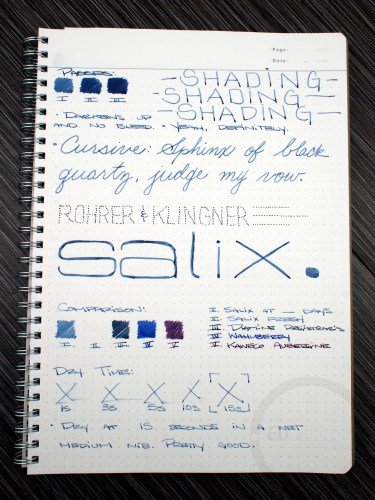 Page:
Date:
Passes:
-SHADING-
-SHADING-
-SHADING-
I II III
· Darkens up
and no bleed. · Yeah, definitely.
· Cursive: Sphinx of black
quartz, judge my vow.
ROHRER & KLINGNER
salix.
Comparison:
I II III IV V
I. Salix at — days
II. Salix fresh
III. Diamine
IV.
V. Kaweco Aubergine
Dry Time:
X X X X X
1s 3s 5s 10s 15s
· Dry at 15 seconds in a wet
medium nib. Pretty good.